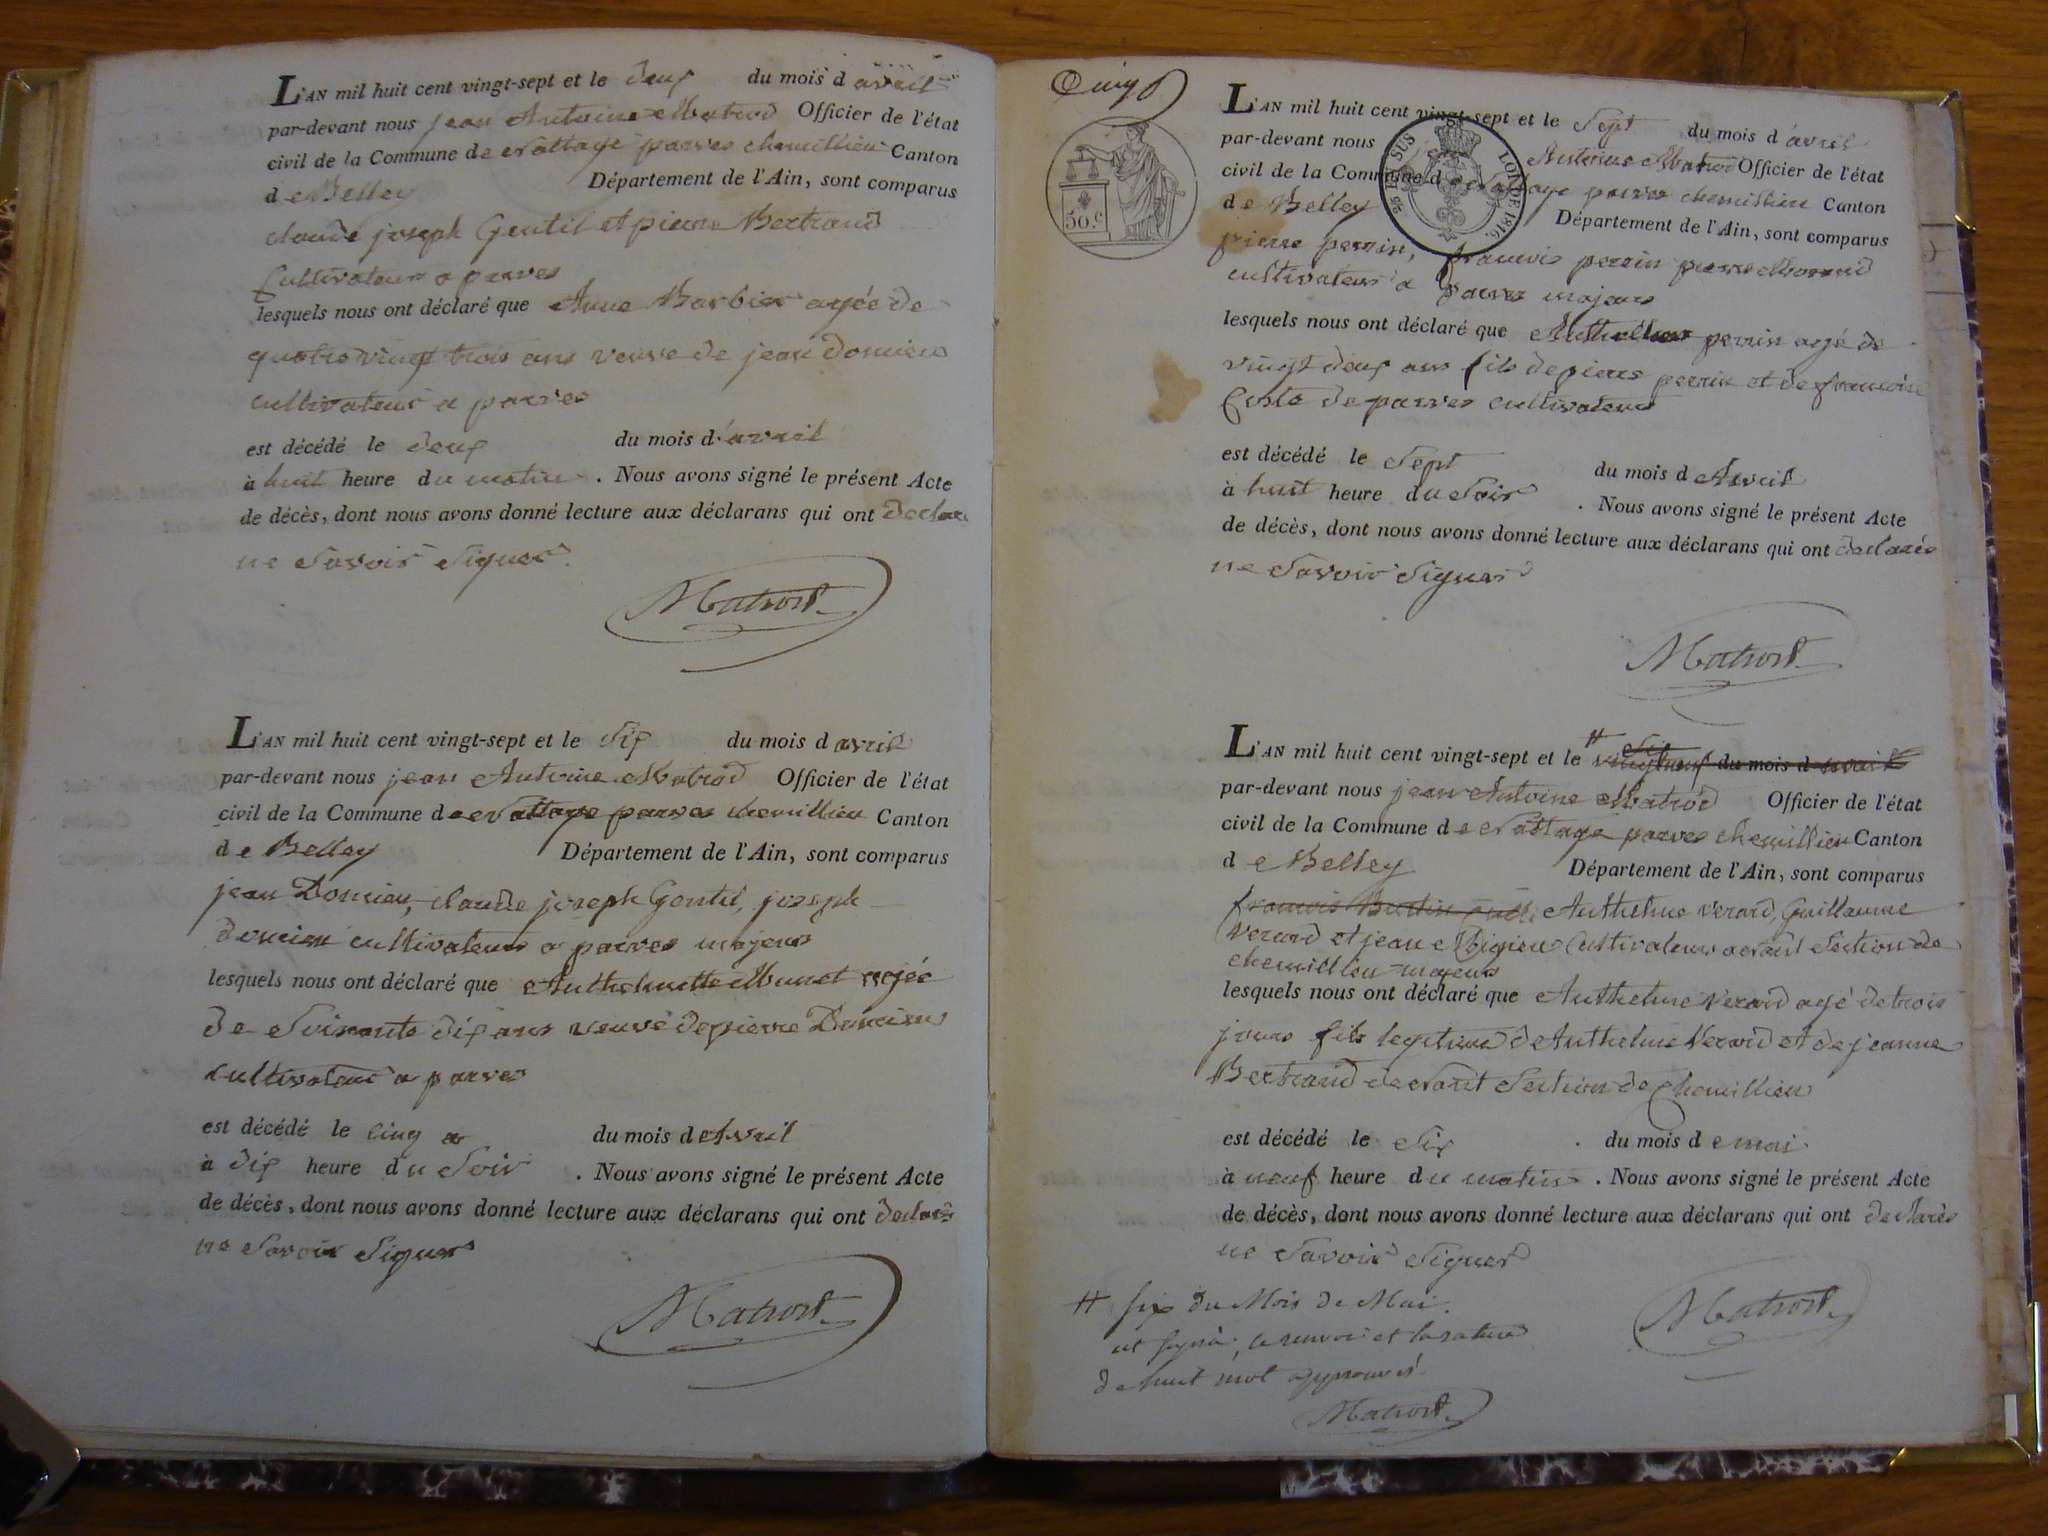 L'AN mil huit cent vingt-sept et le deux du mois d avril
par-devant nous jean Antoine Matrod Officier de l'état
civil de la Commune de Nattage parves chemillieu Canton
de Belley Département de l'Ain, sont comparus
claude joseph Gentil et pierre Bertrand
Cultivateur a parves
lesquels nous ont déclaré que Anne Barbier agée de
quatre vingt trois ans veuve de jean domien
cultivateur a parves
est décédé le deux du mois d'avril
à huit heure du matin. Nous avons signé le présent Acte
de décès, dont nous avons donné lecture aux déclarans qui ont declaré
ne Savoir Signer.
Matrod
L'AN mil huit cent vingt-sept et le Six du mois d avril
par-devant nous jean Antoine Matrod Officier de l'état
civil de la Commune de Nattage parves chemillieu Canton
de Belley Département de l'Ain, sont comparus
jean Domien, claude joseph Gentil, joseph
domien cultivateurs a parves majeurs
lesquels nous ont déclaré que Anthelmette Munet agée
de Soixante dix ans veuve de pierre Domien
cultivateur a parves
est décédé le cinq du mois d Avril
à dix heure du Soir. Nous avons signé le présent Acte
de décès, dont nous avons donné lecture aux déclarans qui ont declaré
ne Savoir Signer
Matrod
Cinq
50.C
SUS LONDE 1816.
L'AN mil huit cent vingt-sept et le Sept du mois d'avril
par-devant nous Antoine Matrod Officier de l'état
civil de la Commune de Nattage parves chemillieu Canton
de Belley Département de l'Ain, sont comparus
pierre perrin, francois perrin pierre
cultivateur a parves majeurs
lesquels nous ont déclaré que Anthelme perrin agé de
vingt deux ans fils de pierre perrin et de francoise
Coste de parves cultivateurs
est décédé le Sept du mois d Avril
à huit heure du Soir. Nous avons signé le présent Acte
de décès, dont nous avons donné lecture aux déclarans qui ont declarés
ne Savoir Signer
Matrod
L'AN mil huit cent vingt-sept et le # vingt neuf du mois d avril
par-devant nous jean Antoine Matrod Officier de l'état
civil de la Commune de Nattage parves chemillieu Canton
de Belley Département de l'Ain, sont comparus
francois Anthelme Verard, Guillaume
Verard et jean Cultivateurs Section de
chemillieu majeurs
lesquels nous ont déclaré que Anthelme Verard agé de trois
jours fils legitime de Anthelme Verard et de jeanne
Bertrand Section de Chemillieu
est décédé le Six du mois de mai
à neuf heure du matin. Nous avons signé le présent Acte
de décès, dont nous avons donné lecture aux déclarans qui ont declarés
ne Savoir Signer
Matrod
# six du Mois de Mai.
le renvoi et la rature
de huit mot approuvés
Matrod